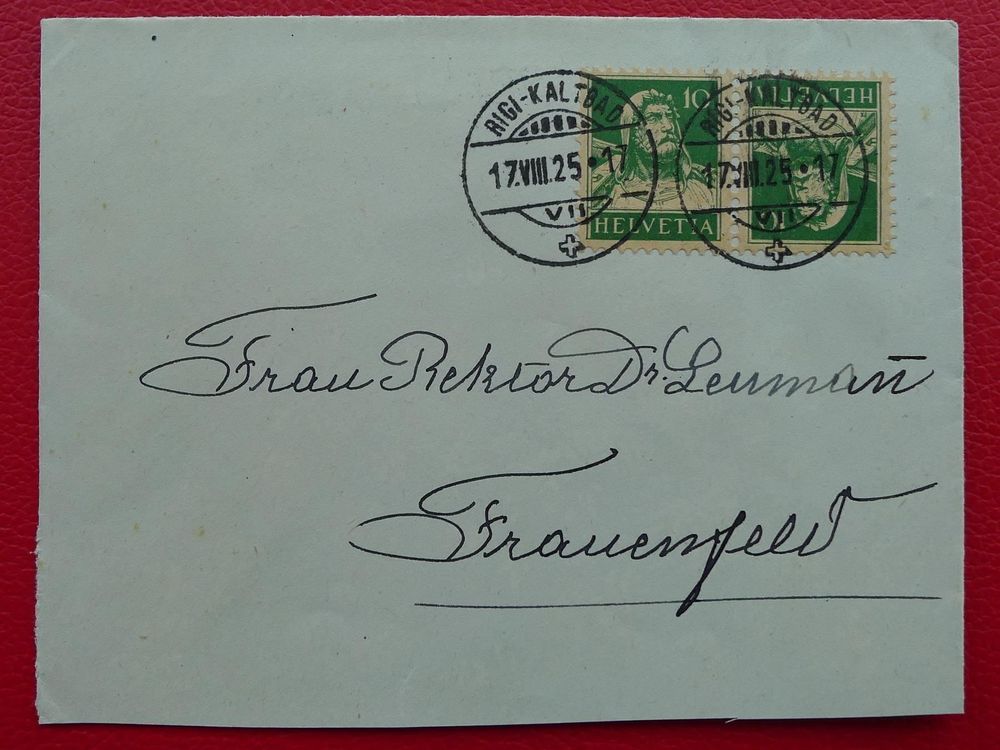 RIGI-KALTBAD
17.VIII.25•17
VII
10
HELVETIA
RIGI-KALTBAD
17.VIII.25•17
VII
10
HELVETIA
Frau Rektor Dr. Leuman̅
Frauenfeld